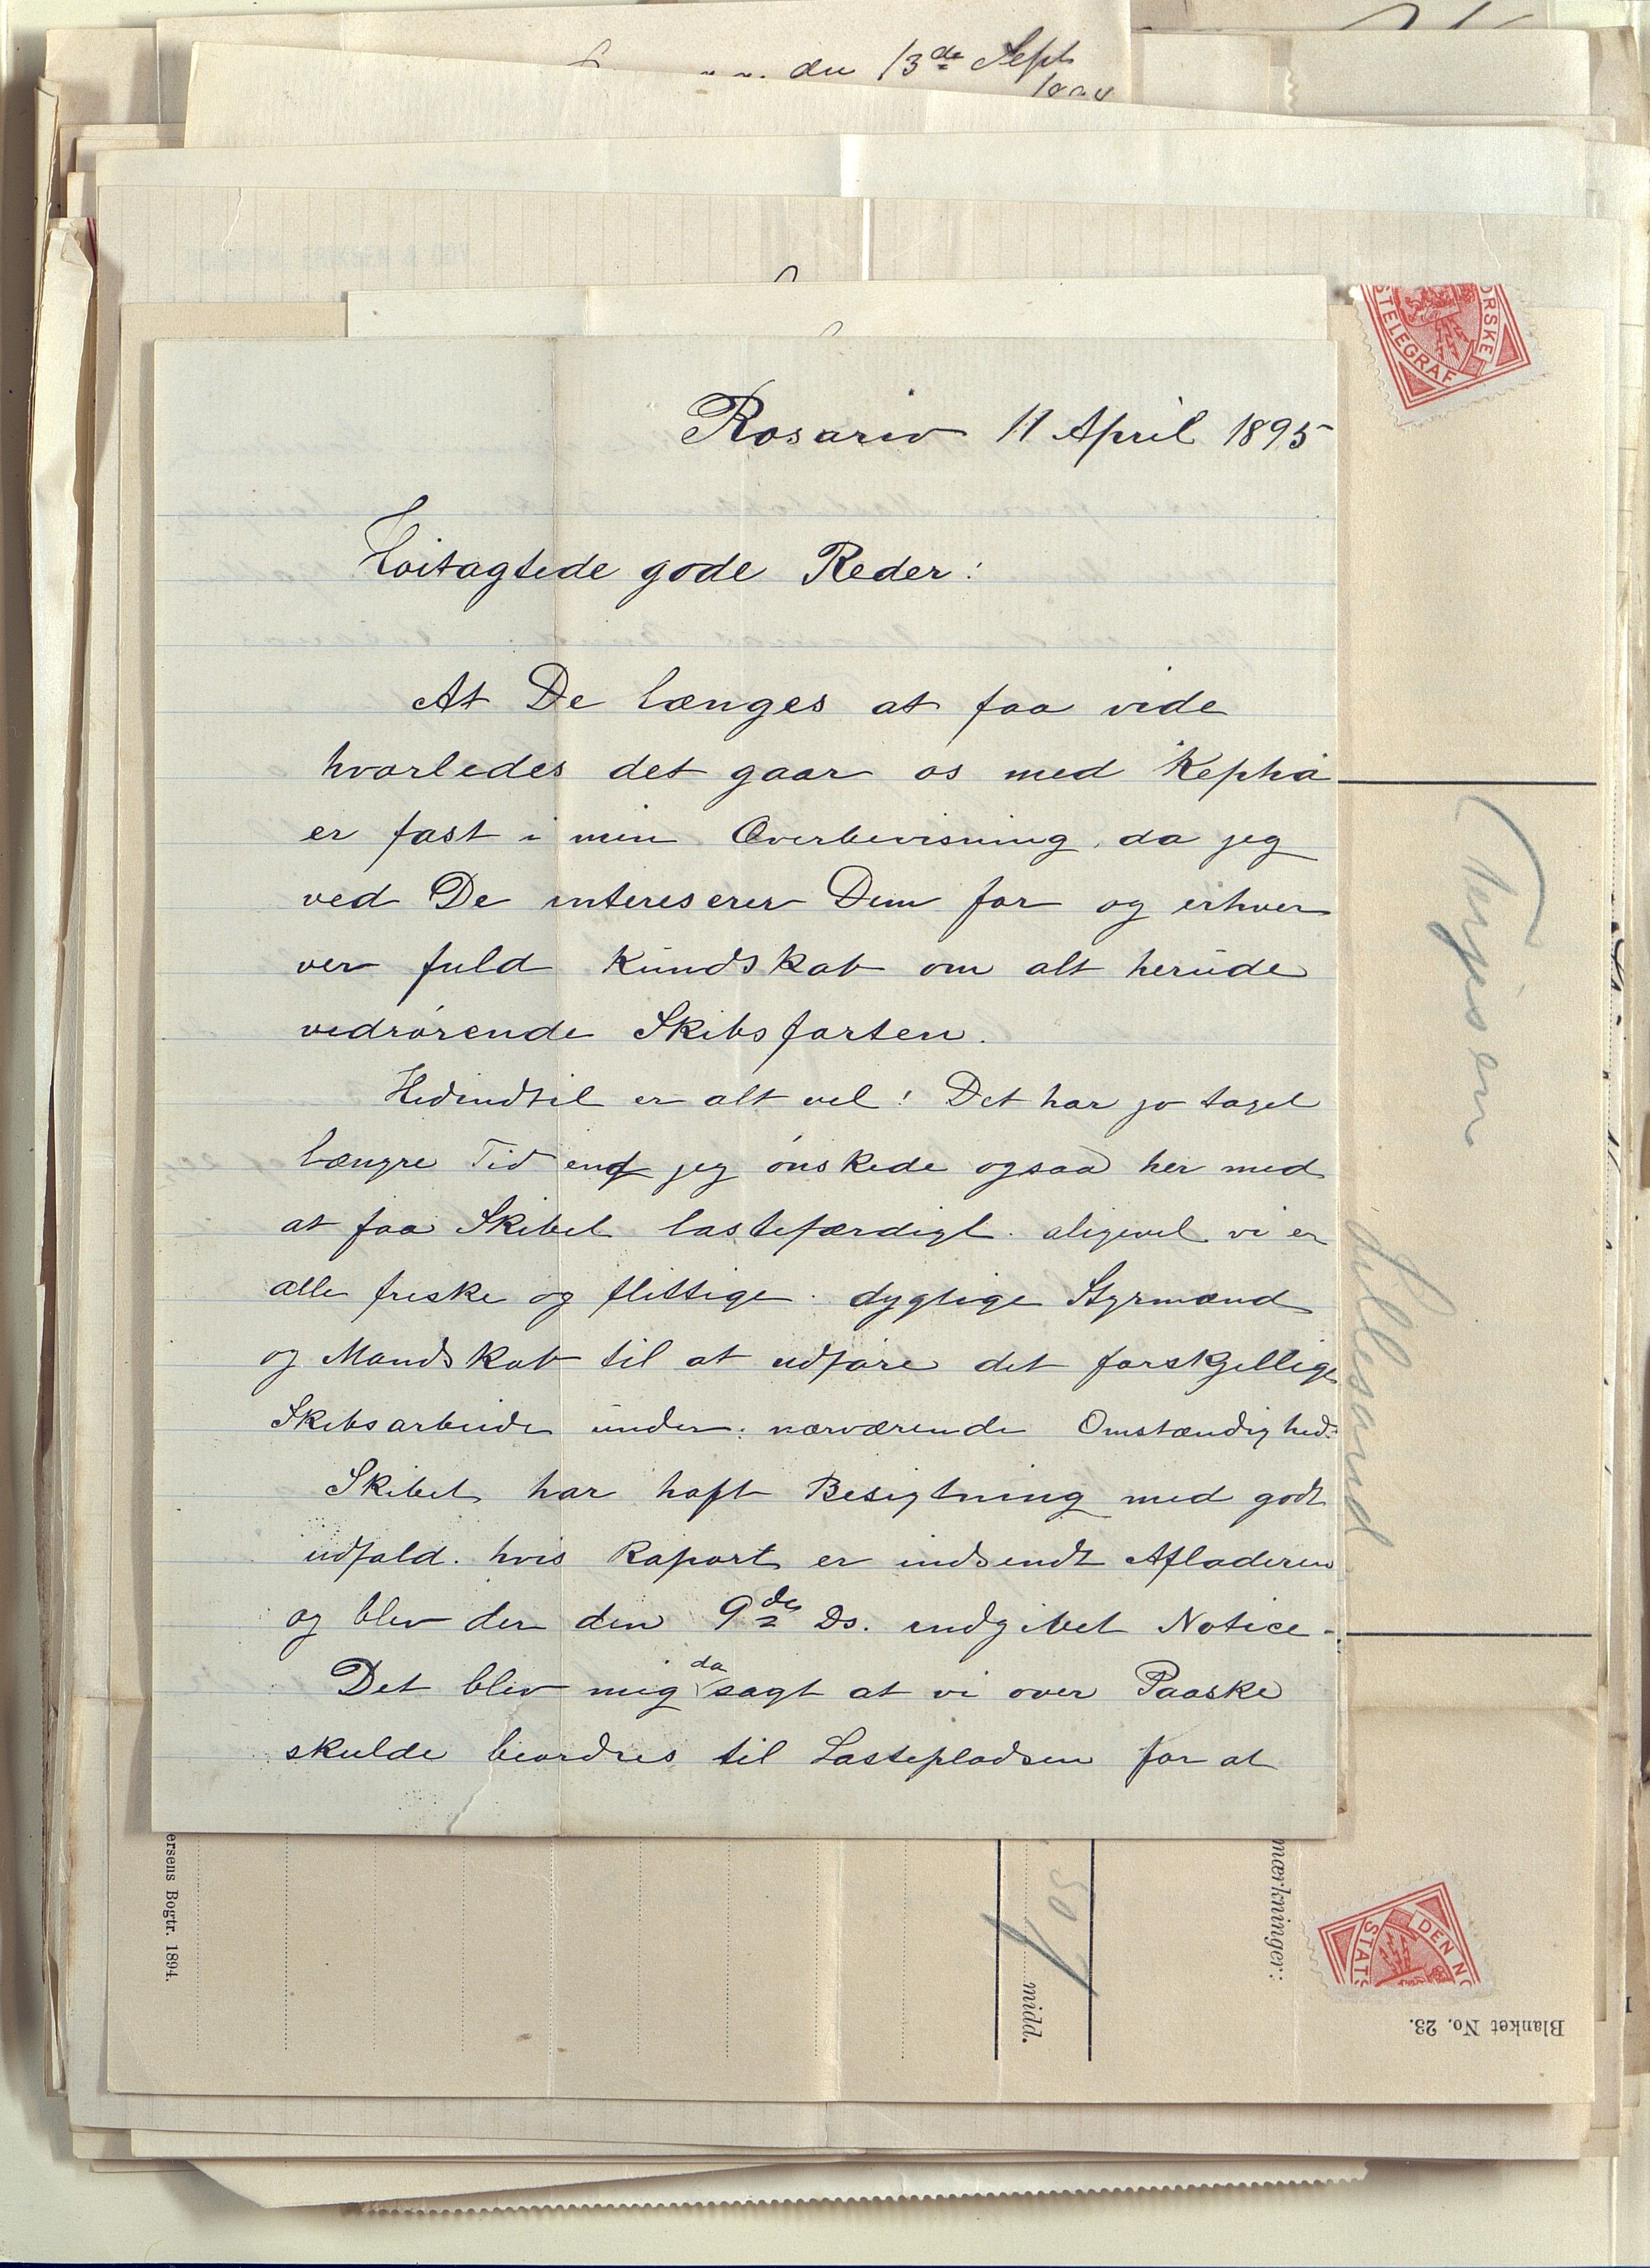 den 13de Sept
Rosario 11 April 1895
Høitagtede gode Reder!
At De længes at faa vide
hvorledes det gaar os med Kepha
er fast i min Overbevisning, da jeg
ved De intereserer Dem for og erhver
ver fuld Kundskab om alt herude
vedrørende Skibsfarten.
Hidindtil er alt vel! Det har jo taget
længre Tid end jeg ønskede ogsaa her med
at faa Skibet lastefærdigt. aligevel vi er
alle friske og flittige. dygtige Styrmænd
og Mandskab til at udføre det forskjellige
Skibsarbeide under nærværende Omstændighed.
Skibet har haft Besigtning med godt
udfald. hvis Raport er indsendt Afladeren
og blev der den 9de Ds. indgivet Notice.
Det blev mig da sagt at vi over Paaske
skulde beordres til Lastepladsen for at
ORSKE
STELEGRAF
Terjesen
Lillesand
ersens Bogtr. 1894.
50
midd.
mærkninger:
DEN NO
STATS
Blanket No. 23.